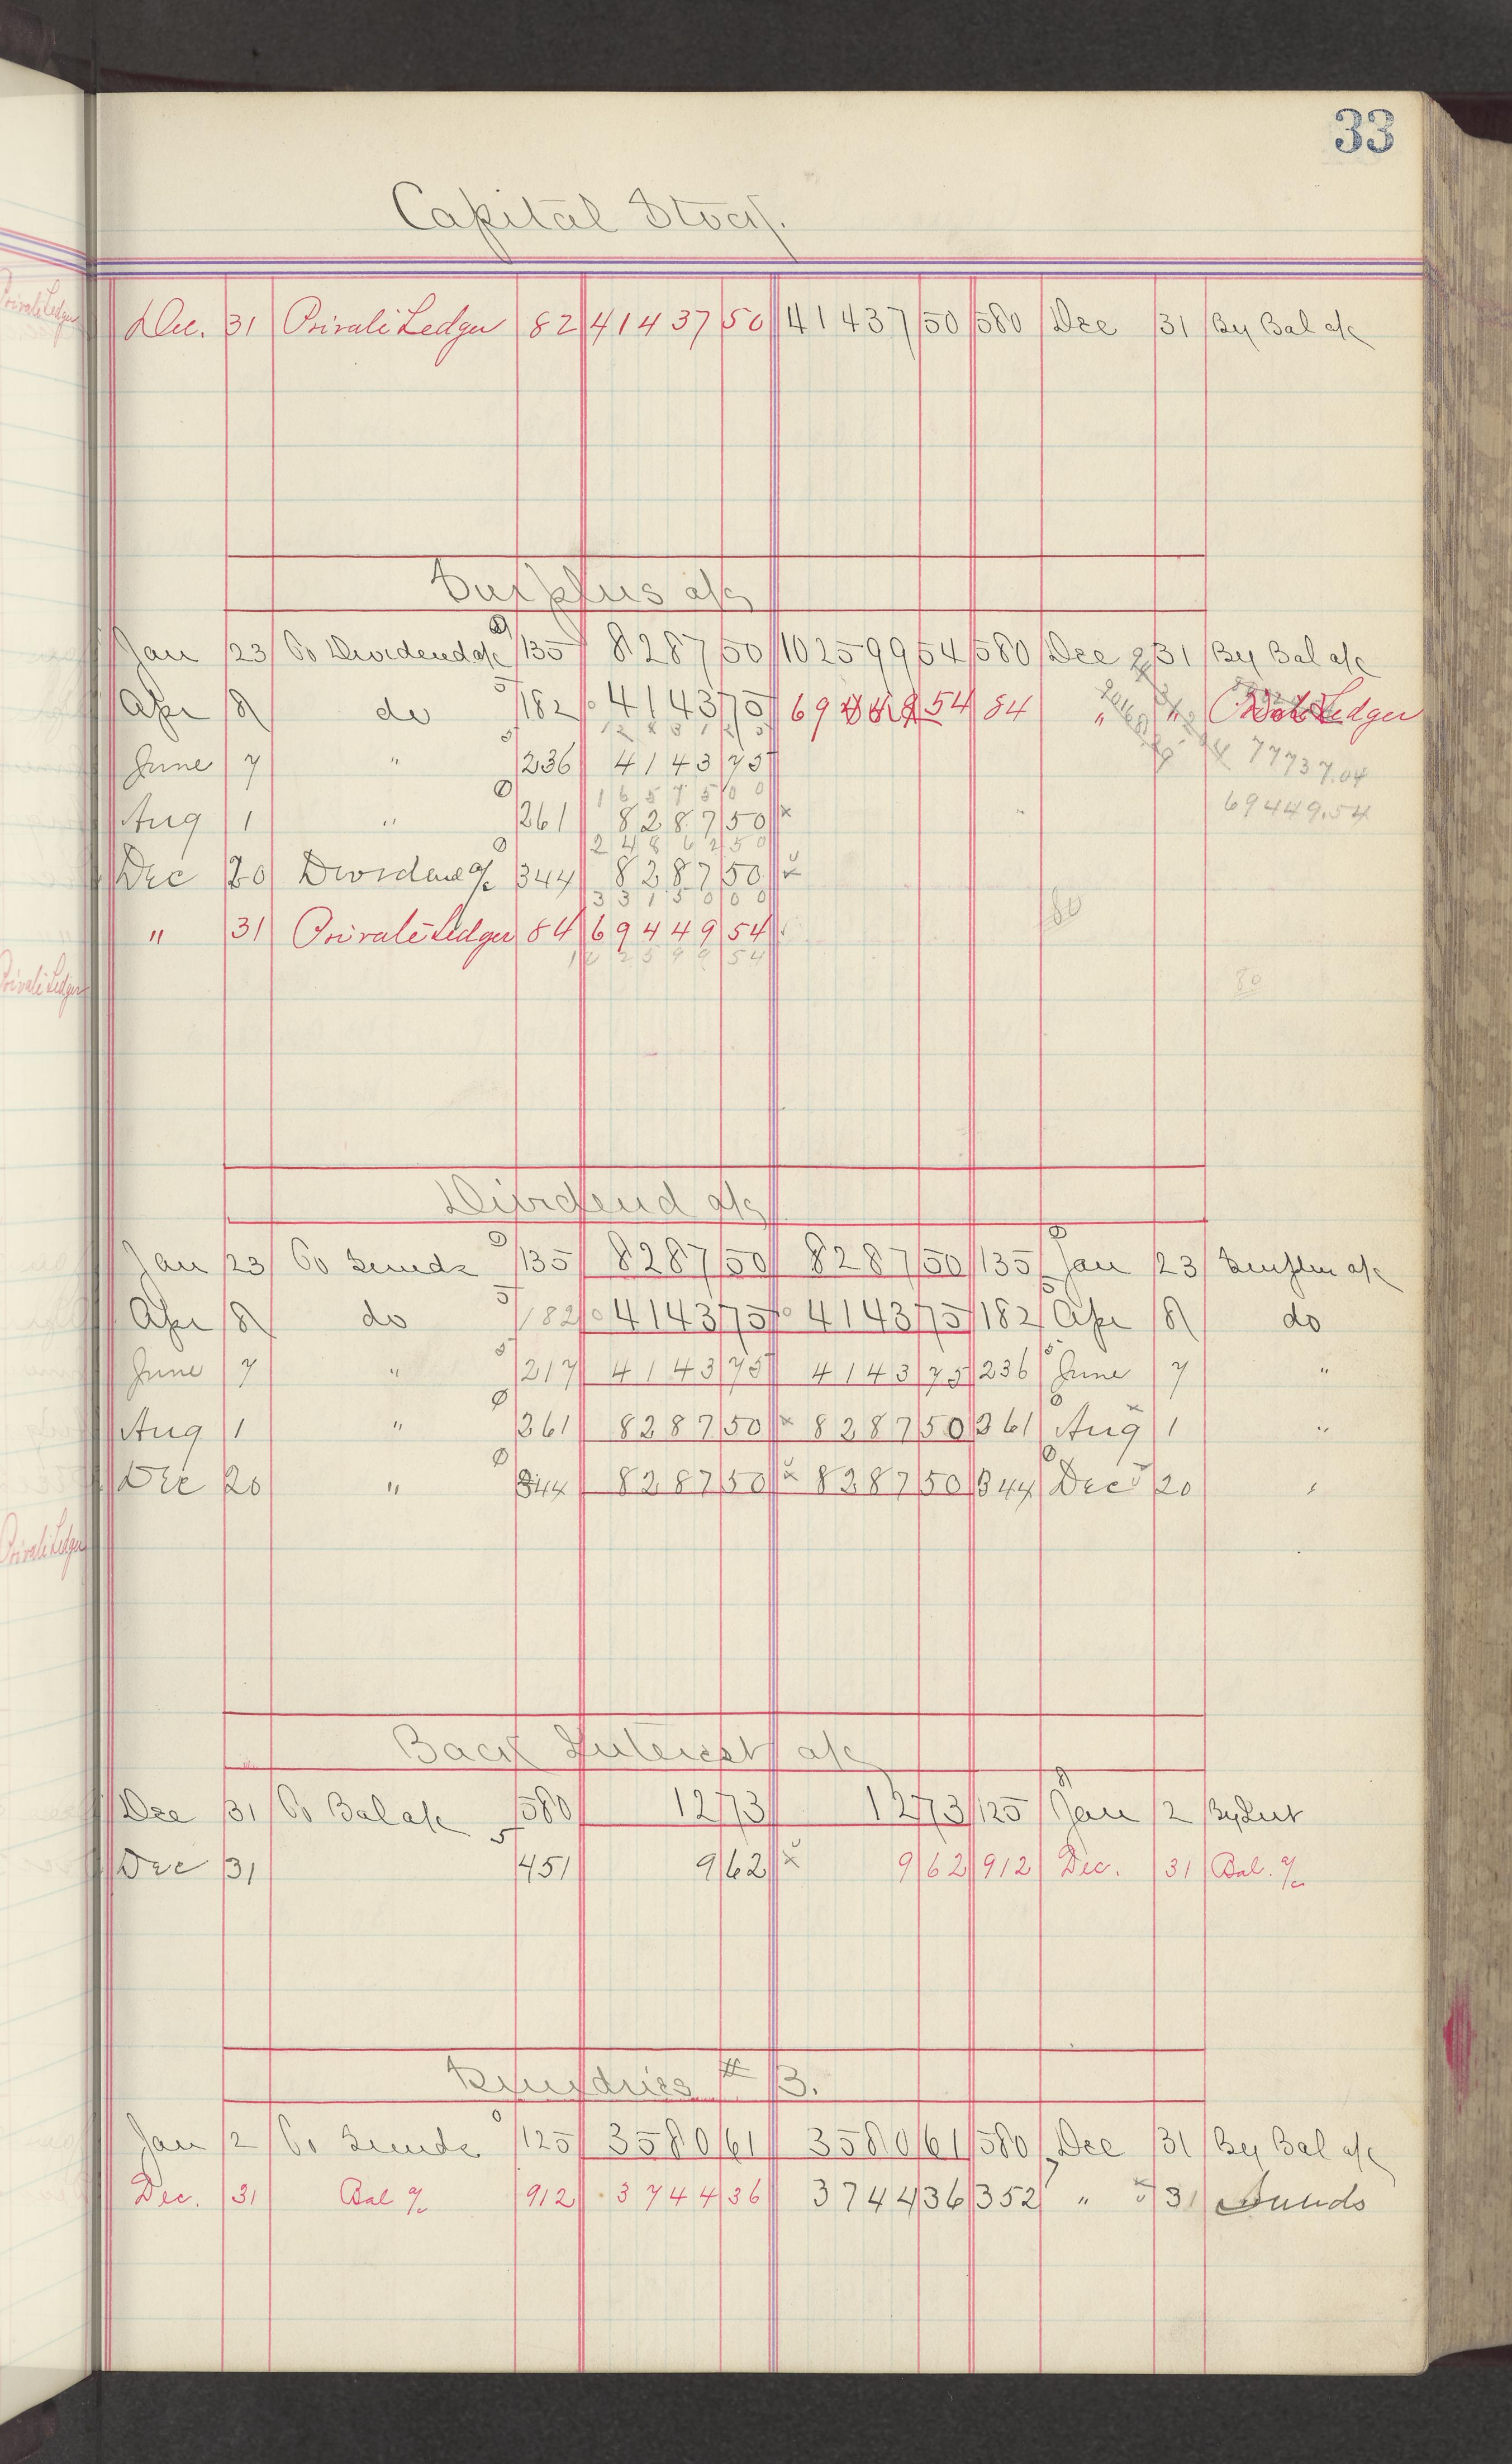 33
Capital Stock.
Dec. 31 Private Ledger 82 41437 50 41437 50 580 Dec 31 By Bal a/c
Surplus a/c
Jan 23 To Dividend a/c 135 8287 50 102599 54 580 Dec 31 By Bal a/c
Apr 8 do 182 4143 75 54 84 " " Ledger
12431 25
June 7 " 236 4143 75 77737.04
16575 00
Aug 1 " 261 8287 50 69449.54
24862 50
Dec 20 Dividend a/c 344 8287 50
33150 00
80
" 31 Private Ledger 84 69449 54
102599 54
80
Dividend a/c
Jan 23 To Sunds 135 8287 50 8287 50 135 Jan 23 Surplus a/c
Apr 8 do 182 4143 75 4143 75 182 Apr 8 do
June 7 " 217 4143 75 4143 75 236 June 7 "
Aug 1 " 261 8287 50 8287 50 261 Aug 1 "
Dec 20 " 344 8287 50 8287 50 344 Dec 20 "
Back Interest a/c
Dec 31 To Bal a/c 580 12 73 12 73 125 Jan 2 By Int
Dec 31 451 9 62 9 62 912 Dec. 31 Bal. a/c
Sundries # 3.
Jan 2 To Sunds 125 3580 61 3580 61 580 Dec 31 By Bal a/c
Dec. 31 Bal a/c 912 3744 36 3744 36 352 " 31 Sunds
Private Ledger
Private Ledger
Private Ledger